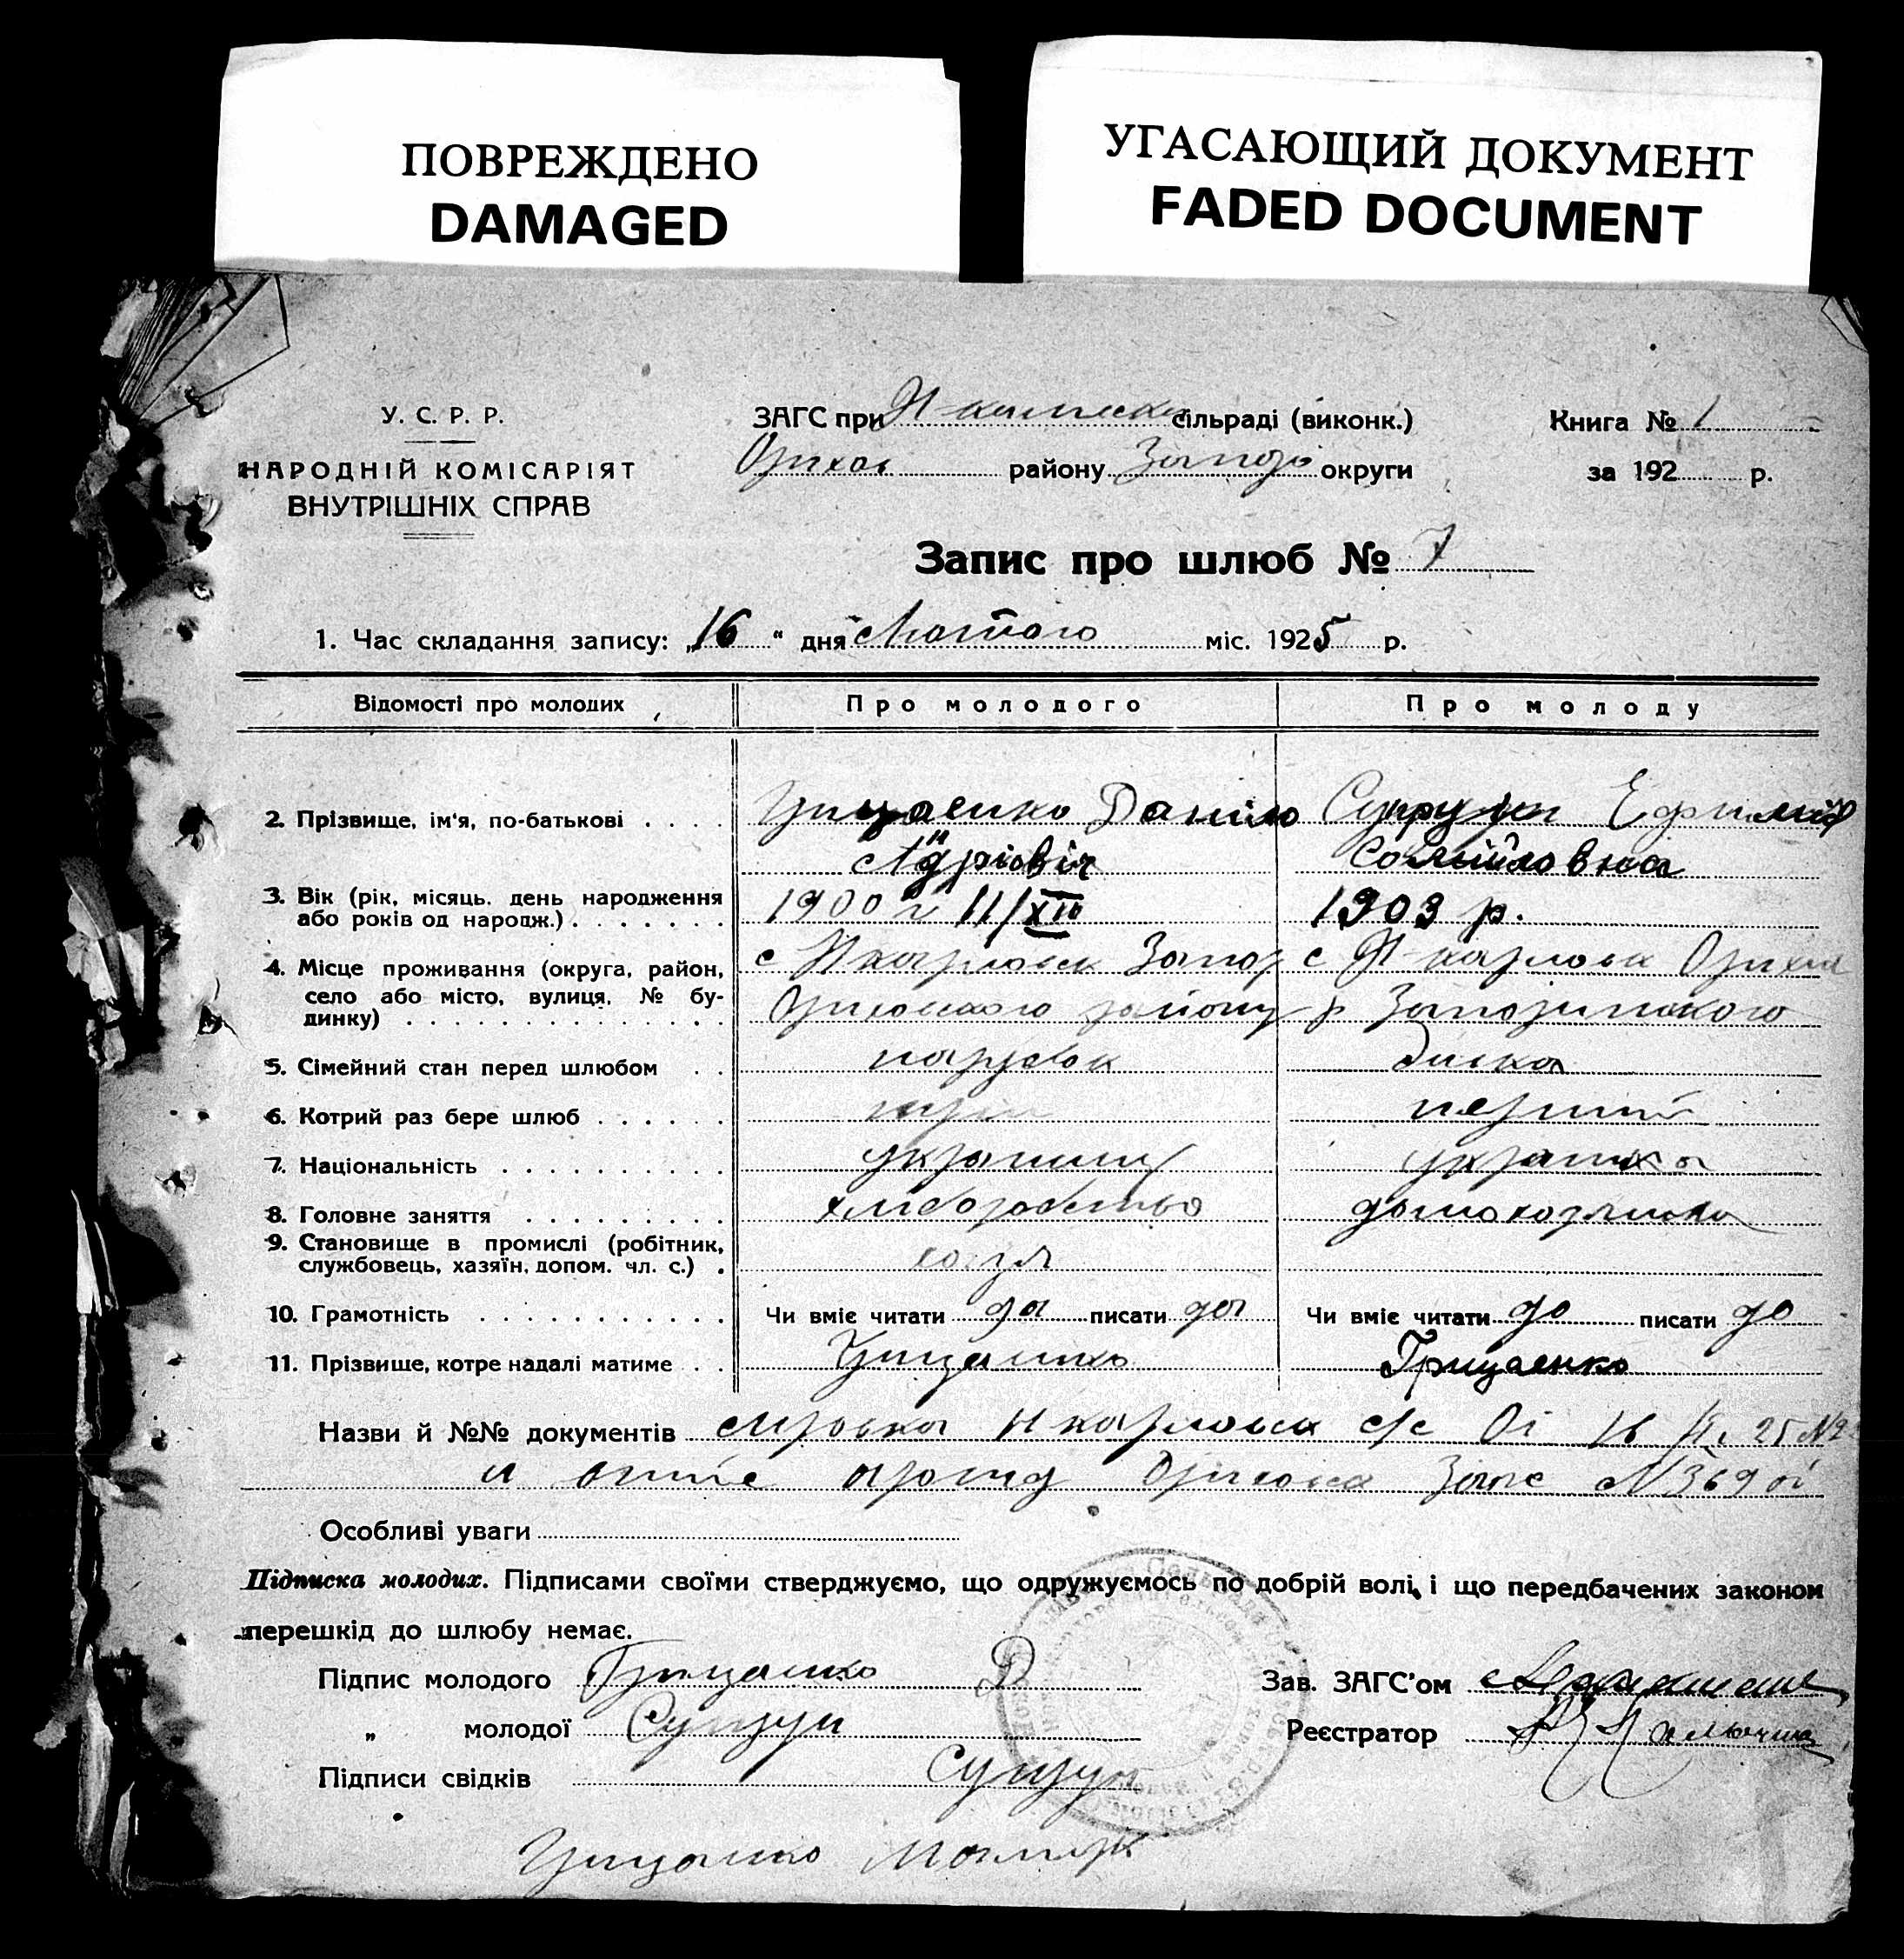 ПОВРЕЖДЕНО
DAMAGED
УГАСАЮЩИЙ ДОКУМЕНТ
FADED DOCUMENT
У. С. Р. Р.
НАРОДНІЙ КОМІСАРІЯТ
ВНУТРІШНІХ СПРАВ
ЗАГС при сільраді (виконк.)
Оріхов району Запоріз округи
Книга № 1
за 192 р.
Запис про шлюб № 7
1. Час складання запису: „16“ дня Лютого міс. 1925 р.
Відомості про молодих
Про молодого
Про молоду
2. Прізвище, ім'я, по-батькові
Грицаенко Данило
Супрун Ефимія
Адріовіч
Сомійловна
3. Вік (рік, місяць. день народження
або років од народж.)
1900 г 11/XII
1903 р.
4. Місце проживання (округа, район,
село або місто, вулиця, № бу-
динку)
с Н карловк Запор
с Н-карловк Оріхів
Оріховского району
р Запорізького
5. Сімейний стан перед шлюбом
парубок
дивка
6. Котрий раз бере шлюб
перший
7. Національність
українка
8. Головне заняття
хлиборобство
домохозяйка
9. Становище в промислі (робітник,
службовець, хазяїн, допом. чл. с.)
10. Грамотність
Чи вміє читати да писати да
Чи вміє читати да писати да
11. Прізвище, котре надалі матиме
Грицаенко
Грицаенко
Назви й №№ документів Н карловск с/с 16/II 25 №
Оріховск Загс №369
Особливі уваги
Підписка молодих. Підписами своїми стверджуємо, що одружуємось по добрій волі, і що передбачених законом
перешкід до шлюбу немає.
Підпис молодого Грицаенко Д
Зав. ЗАГС'ом
„ молодої Супрун
Реєстратор
Підписи свідків Супрун
Грицаенко